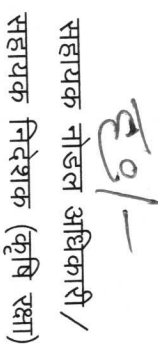 ह0/-
सहायक नोडल अधिकारी/
सहायक निदेशक (कृषि रक्षा)